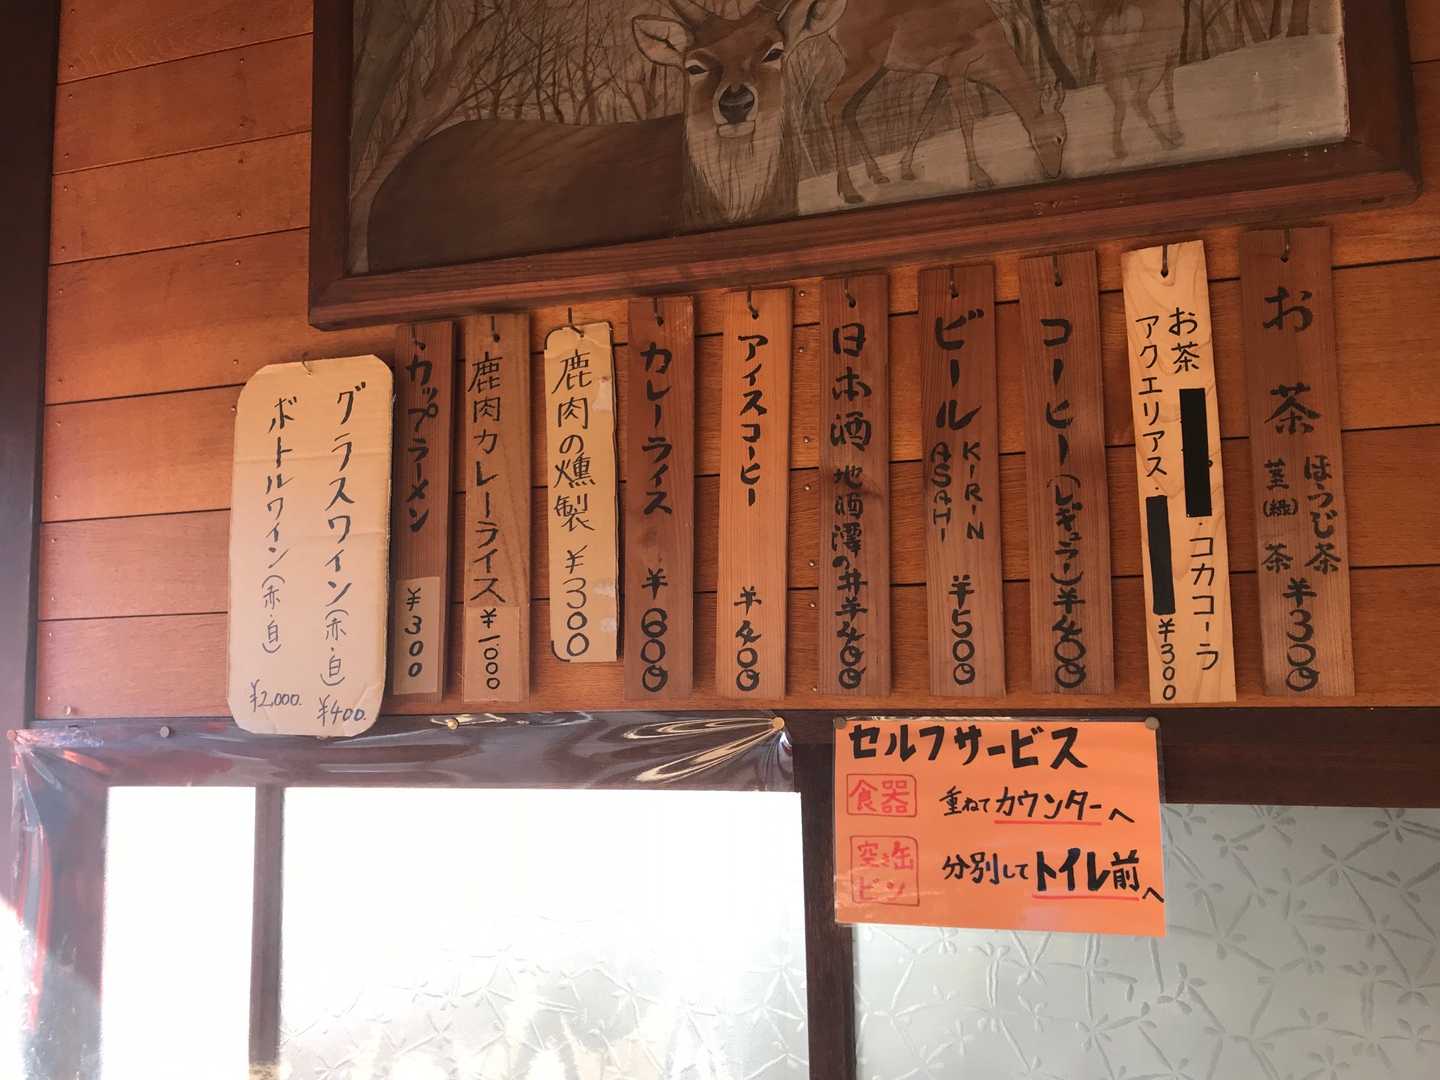 お茶 ほうじ茶 茎(緑)茶 ¥300
お茶 ・コカコーラ
アクエリアス・ ¥300
コーヒー(レギュラー)¥400
ビール KIRIN ASAHI ¥500
日本酒 地酒澤の井 ¥400
アイスコーヒー ¥400
カレーライス ¥600
鹿肉の燻製 ¥300
鹿肉カレーライス ¥1000
カップラーメン ¥300
グラスワイン(赤・白) ¥400.
ボトルワイン(赤・白) ¥2,000.
セルフサービス
食器 重ねてカウンターへ
空き缶 ビン 分別してトイレ前へ